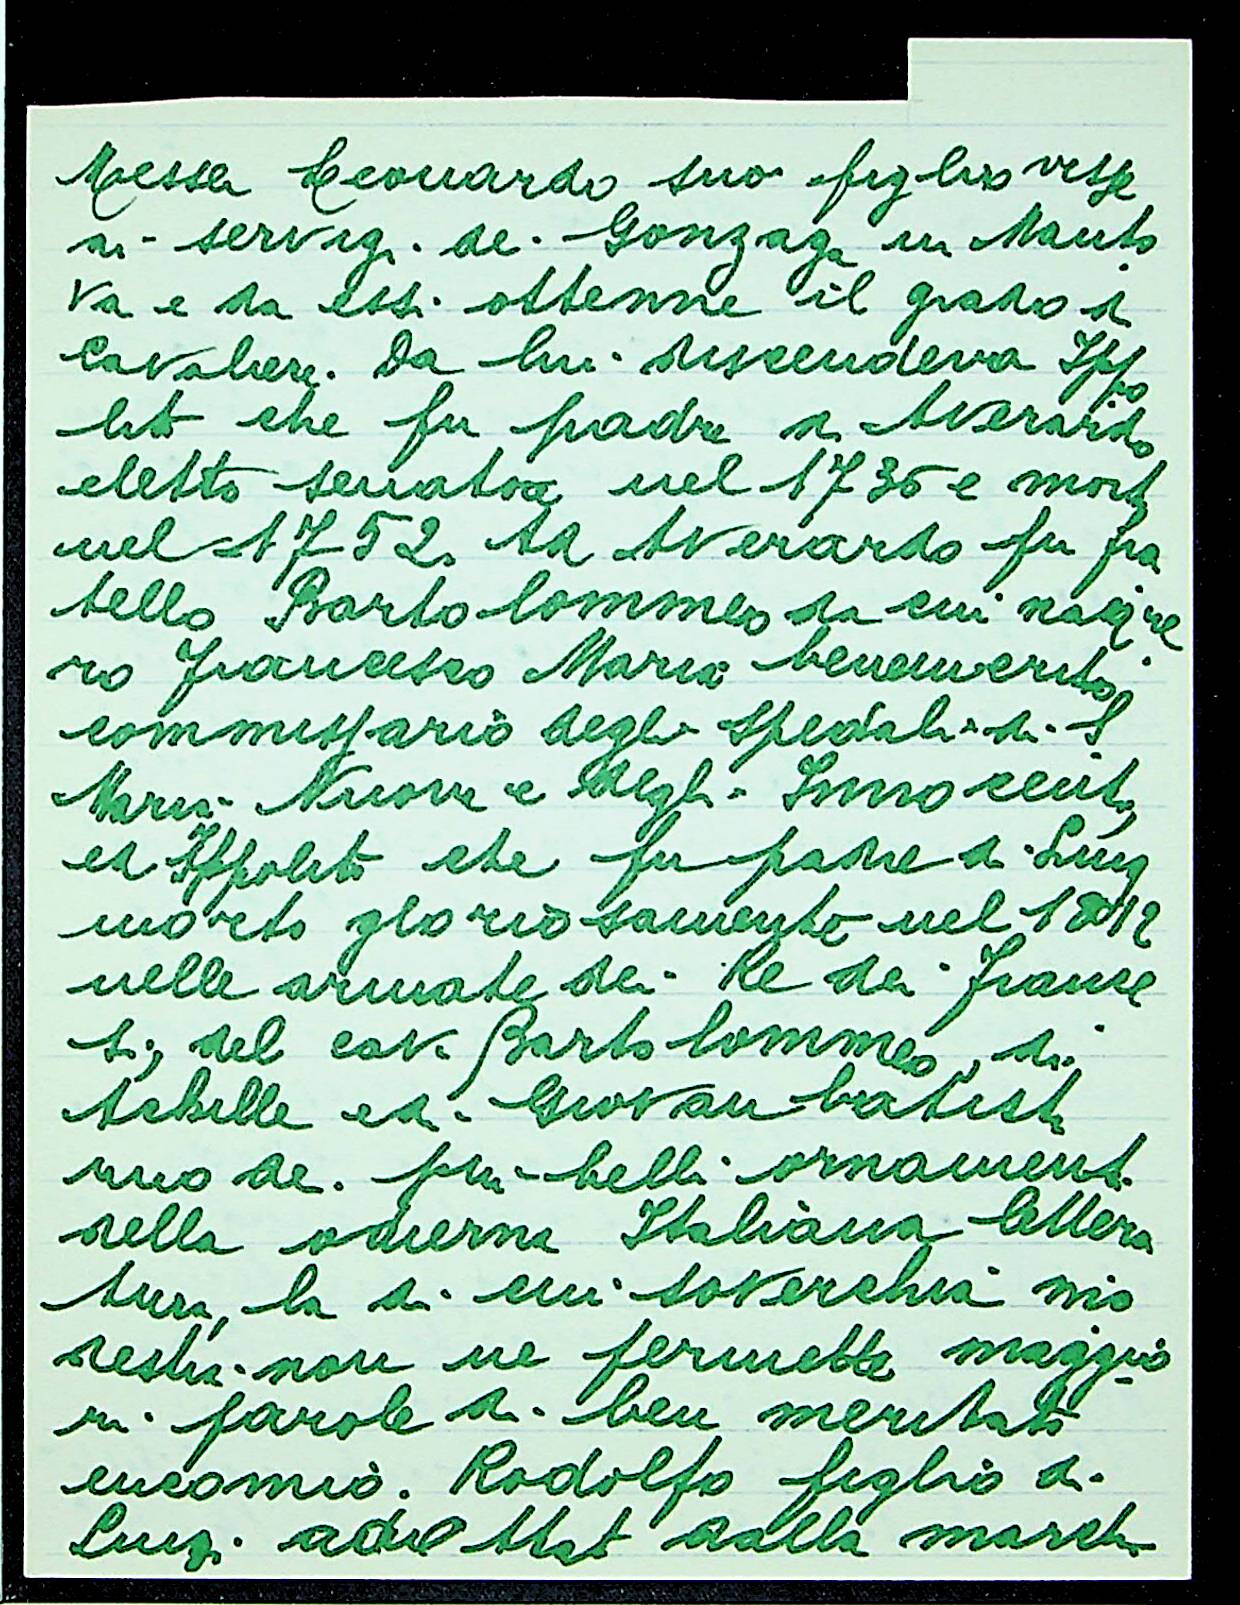 Messer Leonardo suo figlio visse
ai servigi dei Gonzaga in Manto
va e da essi ottenne il grado di
Cavaliere. Da lui discendeva Ippo
lito che fu padre di Averardo
eletto senatore nel 1736 e morto
nel 1752. Ad Averardo fu fra
tello Bartolommeo da cui nacque
ro Francesco Maria benemerito
commissario degli Spedali di S.
Maria Nuova e degli Innocenti,
ed Ippolito che fu padre di Luigi
morto gloriosamente nel 1812
nelle armate dei Re dei France
si, del cav. Bartolommeo, di
Achille e di Giovan batista
uno dei più belli ornamenti
della odierna Italiana lettera
tura, la di cui soverchia mo
destia non ne permette maggio
ri parole di ben meritato
encomio. Rodolfo figlio di
Luigi adottat dalla march